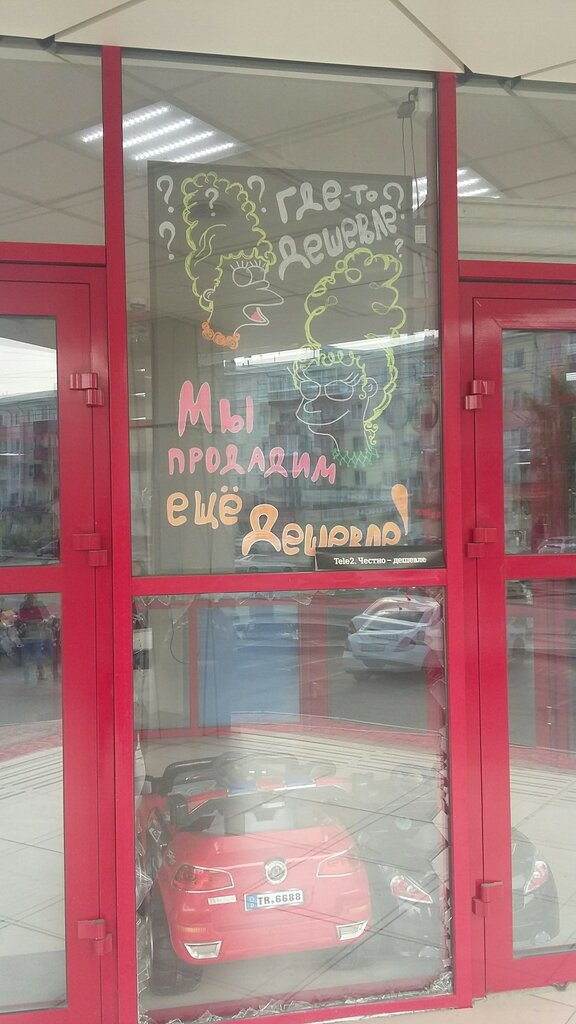 ? ? ? ?
?
Где-то
дешевле?
Мы
продадим
ещё
дешевле!
Tele2. Честно – дешевле
TR.6688